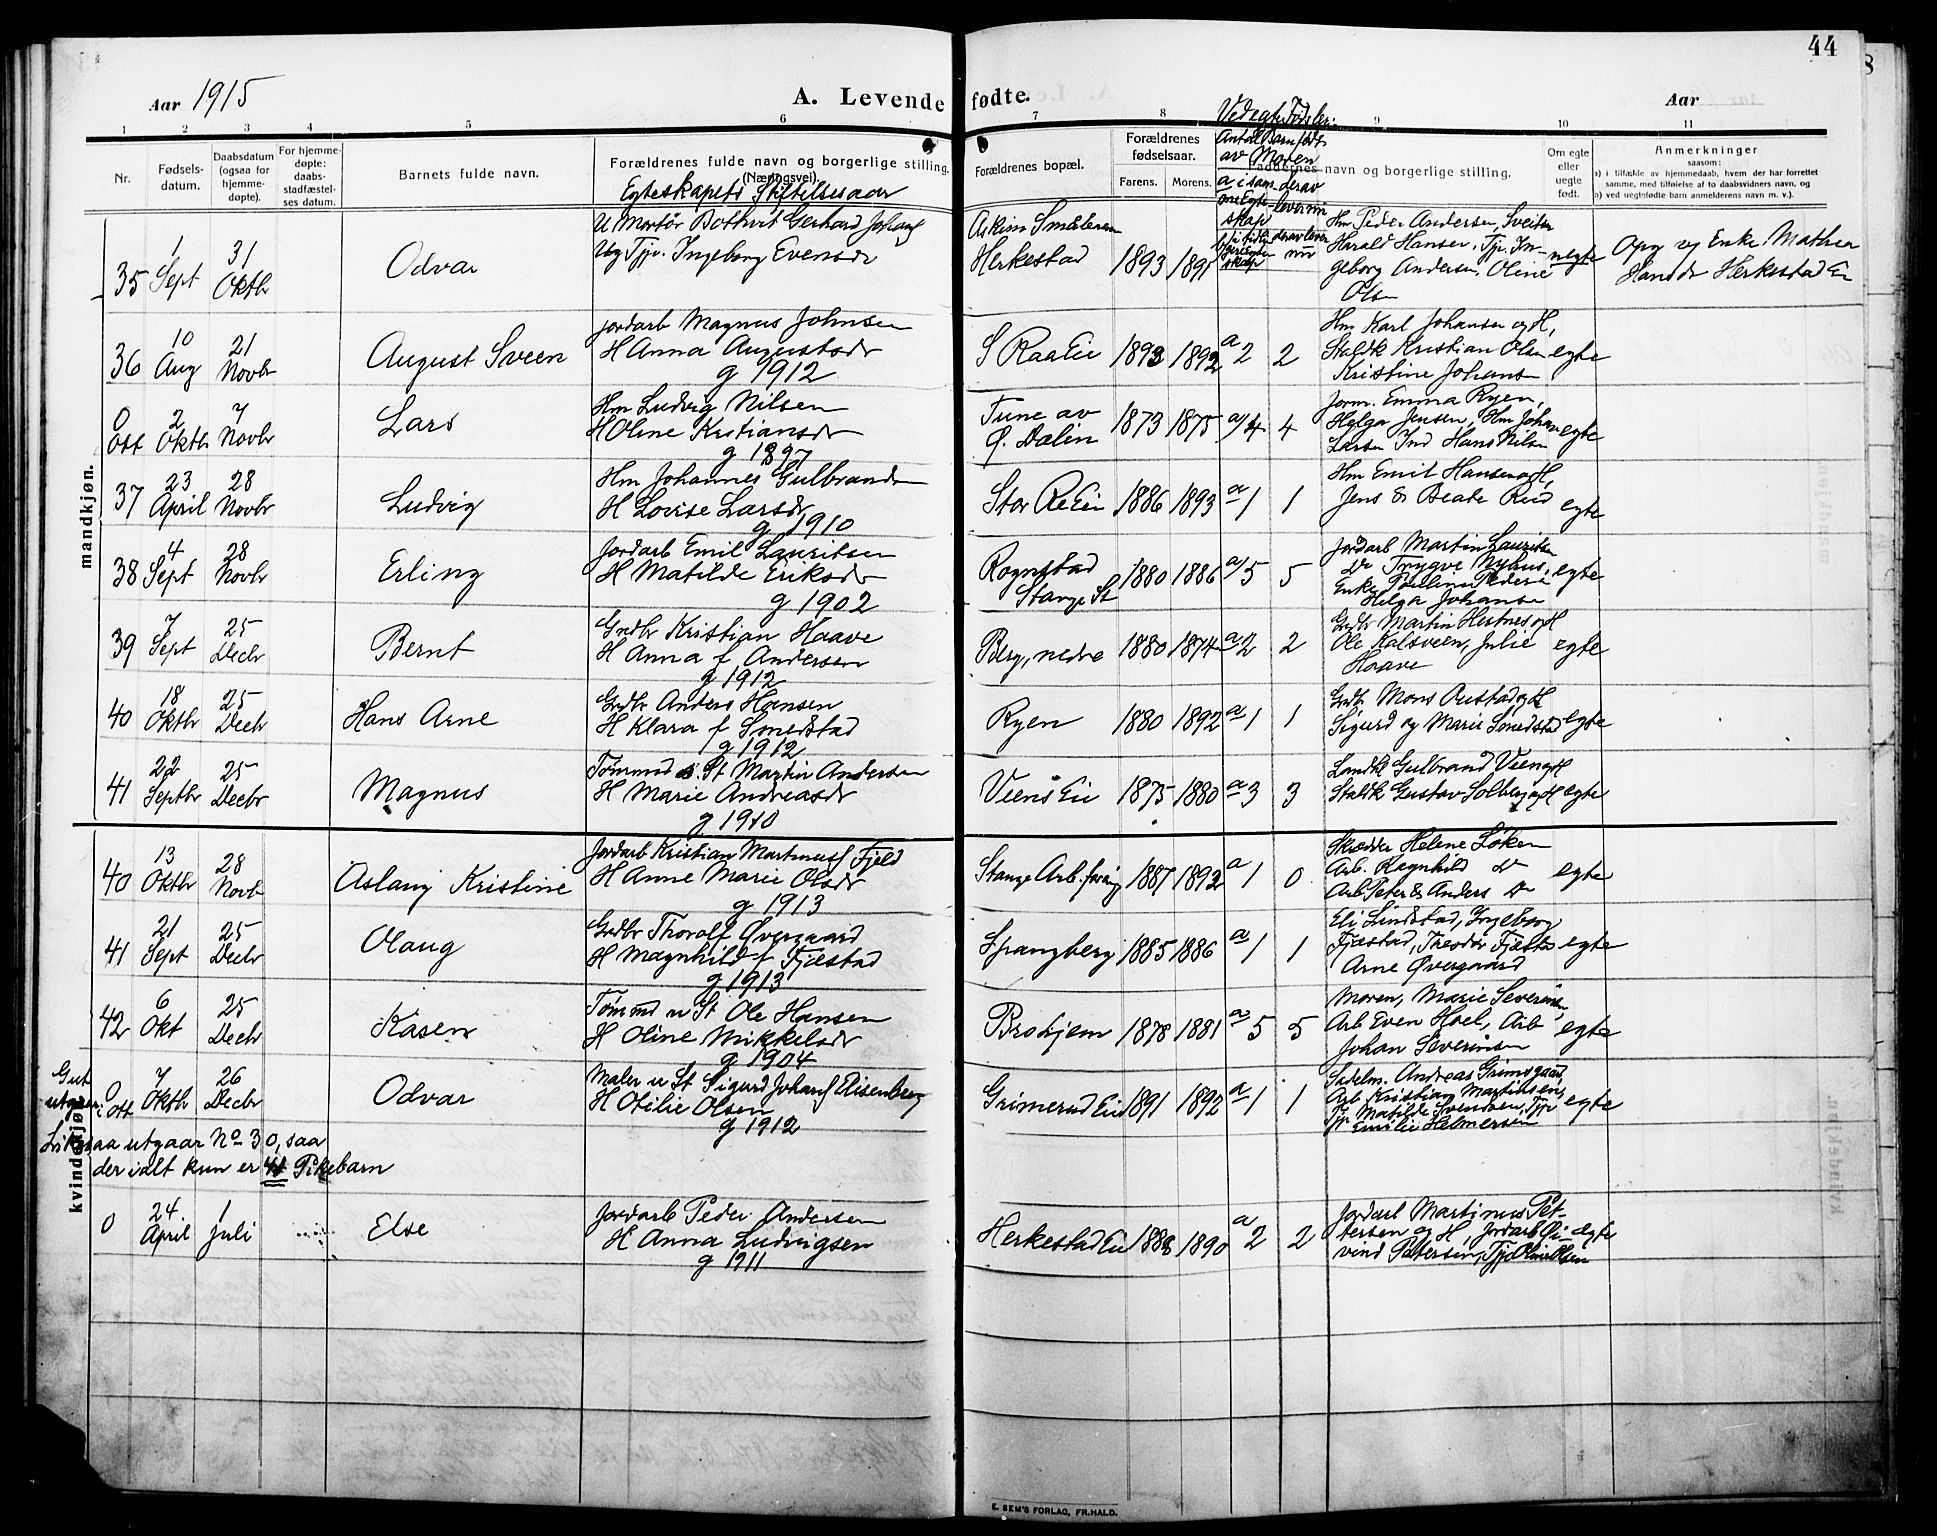 44
Aar 1915
A. Levende fødte.
Aar
1 2 3 4 5 6 7 8 9 10 11
Nr.
Fødsels-
datum.
Daabsdatum
(ogsaa for
hjemme-
døpte).
For hjemme-
døpte:
daabs-
stadfæstel-
ses datum.
Barnets fulde navn.
Forældrenes fulde navn og borgerlige stilling.
(Næringsvei).
Egteskapets Stiftelsesaar
Forældrenes bopæl.
Forældrenes
fødselsaar.
Farens. Morens.
Ved egte Fødsler:
Antal Barn født
av Moren
a i sam-
me Egte-
skap
derav
lever nu
b i tidli-
gere Egte-
skap
derav lever
nu
Faddernes navn og borgerlige stilling.
Om egte
eller
uegte
født.
Anmerkninger
saasom:
a) i tilfælde av hjemmedaab, hvem der har forrettet
samme, med tilføielse af to daabsvidners navn, og
b) ved uegtefødte barn anmelderens navn m. v.).
mandkjøn.
35 1 Sept 31 Oktbr Odvar
U Martør Bothvit Gerhard Johans
Ug Tjp. Ingeborg Evensdr
Askim Smaalenene
Herkestad 1893 1891
Hm Peder Andersen, Sveitser
Harald Hansen, Tjp. In-
geborg Andersen, Oline
Olsn
uegte
Opg og Enke Mathea
Hansdr Herkestad Ei
36 10 Aug 21 Novbr August Sveen
Jordarb Magnus Johnsen
H Anna Augustsdr
g 1912
S Raa Eie 1893 1892 a 2 2
Hm Karl Johansen og H,
Staldk Kristian Olsen
Kristine Johansn
egte
0 ott 2 Oktbr 7 Novbr Lars
Hm Ludvig Nilsen
H Oline Kristiansdr
g 1897
Tune av
Ø. Dælin 1873 1875 a/4 4
Jorm. Emma Ryen,
Helga Jensen, Hm Johan
Larsen Ind Hans Nilsen
egte
37 23 April 28 Novbr Ludvig
Hm Johannes Gulbrandsn
H Lovise Larsdr
g 1910
Stor Re Eie 1886 1893 a 1 1
Hm Emil Hansen og H,
Jens & Beate Rud
egte
38 4 Sept 28 Novbr Erling
Jordarb Emil Lauritsen
H Matilde Eriksdr
g 1902
Rognstad
Stange St 1880 1886 a/5 5
Jordarb Martin Lauritsn
Dr Trygve Nyhus,
Enke Pauline Pedersn
Helga Johansn
egte
39 7 Sept 25 Decbr Bernt
Grdbr Kristian Haave
H Anna f Andersen
g 1912
Berg, nedre 1880 1874 a 2 2
Grdbr Martin Hertnes og H
Ole Kalsveen, Julie
Haave
egte
40 18 Oktbr 25 Decbr Hans Arne
Grdbr Anders Hansen
H Klara f Smedstad
g 1912
Ryen 1880 1892 a 1 1
Grdbr Mons Austad og H
Sigurd og Marie Smedstad
egte
41 22 Septbr 25 Decbr Magnus
Tømmmd u. St Martin Andersen
H Marie Andreasdr
g 1910
Viens Eie 1875 1880 a 3 3
Landh Gulbrand Vien og H
Staldk Gustav Solberg og H
egte
kvindekjøn.
40 13 Oktbr 28 Novb Aslaug Kristine
Jordarb Kristian Martinus Fjeld
H Anne Marie Olsdr
g 1913
Stange Arb. foreng 1887 1892 a 1 0
Skrædder Helene Løken
Arb. Ragnhild Do
Arb Peter & Anders Do
egte
41 21 Sept 25 Decbr Olaug
Grdbr Thorolf Øvergaard
H Magnhild f Fjæstad
g 1913
Spangberg 1885 1886 a 1 1
Eli Lindstad, Ingeborg
Fjæstad, Theodor Fjæstad
Arne Øvergaard
egte
42 6 Okt 25 Decbr Kasen
Tømmmd u St Ole Hansen
H Oline Mikkelsdr
g 1904
Brohjem 1878 1881 a 5 5
Moren, Marie Severins,
Arb Even Hoel, Arb
Johan Severinsen
egte
Gut
utgaar:
0 ott 7 Oktbr 26 Decbr Odvar
Maler u St Sigurd Johans Elisenberg
H Otilie Olsen
g 1912
Grimerud Eie 1891 1892 a 1 1
Sadelm. Andreas Grimsgaard,
Arb Kristian Martinsen,
Tjp Matilde Svendsen, Tjp
Emilie Halmersen
egte
Likesaa utgaar No 30, saa
der ialt kun er 41 Pikebarn
0 24 April 1 juli Else
Jordarb Peder Andersen
H Anna Ludvigsen
g 1911
Herkestad Eie 1888 1890 a 2 2
Jordarb Martinus Pet-
tersen og H, Jordarb Ei-
vind Pettersen, Tjp Oline Olsen
egte
E. SEM'S FORLAG, FR.HALD.